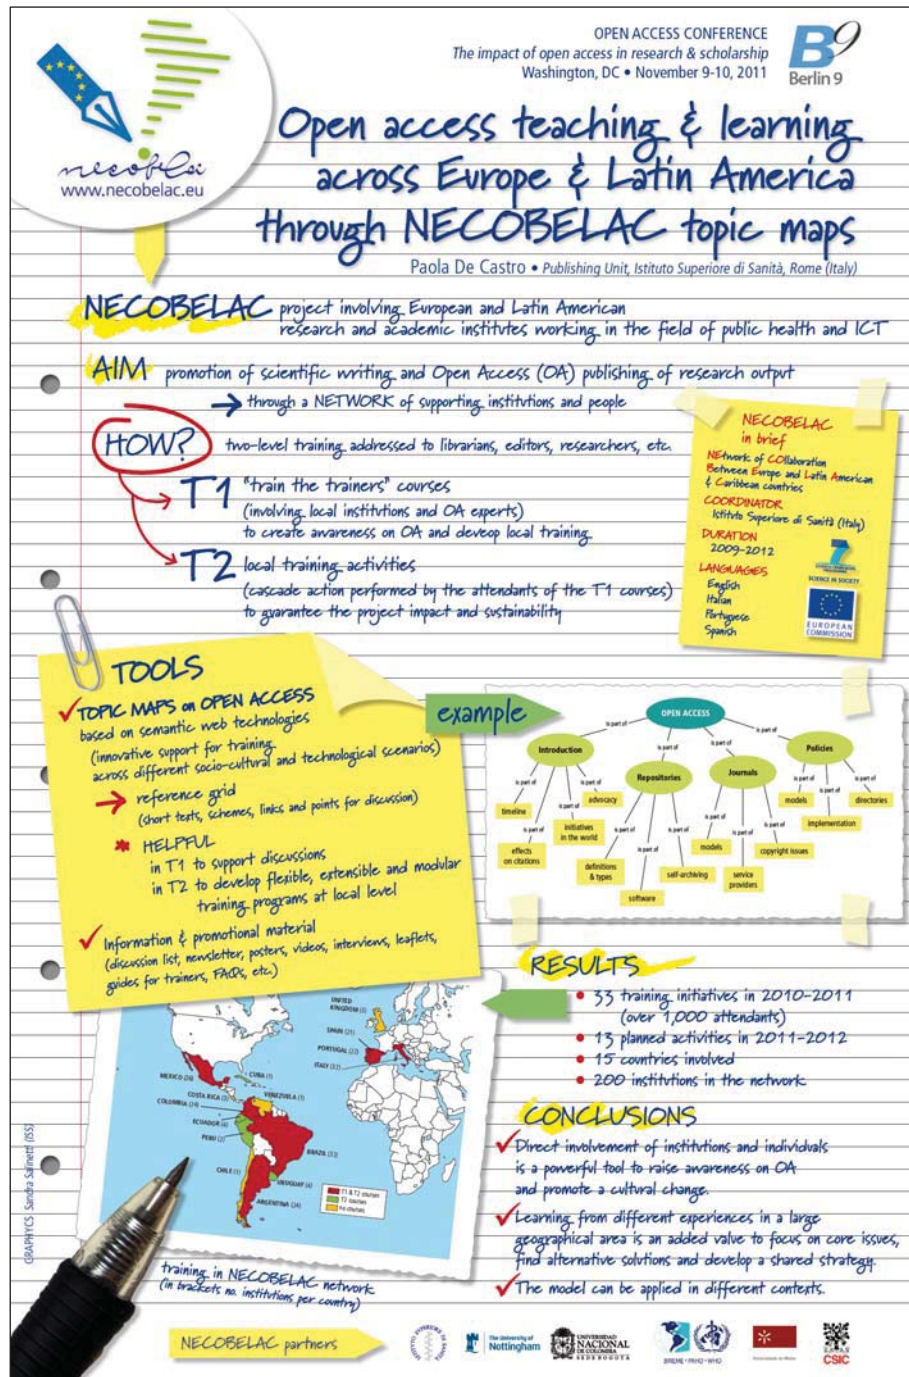 OPEN ACCESS CONFERENCE
The impact of open access in research & scholarship
Washington, DC • November 9-10, 2011
B9
Berlin 9
necobelac
www.necobelac.eu
Open access teaching & learning
across Europe & Latin America
through NECOBELAC topic maps
Paola De Castro • Publishing Unit, Istituto Superiore di Sanità, Rome (Italy)
NECOBELAC project involving European and Latin American
research and academic institutes working in the field of public health and ICT
AIM promotion of scientific writing and Open Access (OA) publishing of research output
through a NETWORK of supporting institutions and people
HOW? two-level training addressed to librarians, editors, researchers, etc.
T1 "train the trainers" courses
(involving local institutions and OA experts)
to create awareness on OA and deveop local training
T2 local training activities
(cascade action performed by the attendants of the T1 courses)
to guarantee the project impact and sustainability
NECOBELAC
in brief
NEtwork of COllaboration
Between Europe and Latin American
& Caribbean countries
COORDINATOR
Istituto Superiore di Sanità (Italy)
DURATION
2009-2012
LANGUAGES
English
Italian
Portuguese
Spanish
7
SCIENCE IN SOCIETY
EUROPEAN
COMMISSION
TOOLS
TOPIC MAPS on OPEN ACCESS
based on semantic web technologies
(innovative support for training
across different socio-cultural and technological scenarios)
reference grid
(short texts, schemes, links and points for discussion)
* HELPFUL
in T1 to support discussions
in T2 to develop flexible, extensible and modular
training programs at local level
Information & promotional material
(discussion list, newsletter, posters, videos, interviews, leaflets,
guides for trainers, FAQs, etc.)
example
OPEN ACCESS
is part of
is part of
is part of
is part of
Introduction
Repositories
Journals
Policies
is part of
is part of
is part of
is part of
is part of
is part of
is part of
is part of
is part of
is part of
is part of
is part of
is part of
timeline
effects
on citations
initiatives
in the world
advocacy
definitions
& types
software
self-archiving
models
service
providers
copyright issues
models
implementation
directories
RESULTS
• 33 training initiatives in 2010-2011
(over 1,000 attendants)
• 13 planned activities in 2011-2012
• 15 countries involved
• 200 institutions in the network
UNITED
KINGDOM
SPAIN (21)
PORTUGAL
ITALY
MEXICO
CUBA
COSTA RICA
VENEZUELA
COLOMBIA
ECUADOR
PERU
BRAZIL
CHILE
URUGUAY
ARGENTINA
T1 & T2 courses
T2 courses
no courses
training in NECOBELAC network
(in brackets no. institutions per country)
CONCLUSIONS
Direct involvement of institutions and individuals
is a powerful tool to raise awareness on OA
and promote a cultural change.
Learning from different experiences in a large
geographical area is an added value to focus on core issues,
find alternative solutions and develop a shared strategy.
The model can be applied in different contexts.
GRAPHYCS Sandra Salinetti (ISS)
NECOBELAC partners
ISTITUTO SUPERIORE DI SANITÀ
The University of
Nottingham
UNIVERSIDAD
NACIONAL
DE COLOMBIA
SEDE BOGOTÁ
BIREME • PAHO • WHO
CSIC